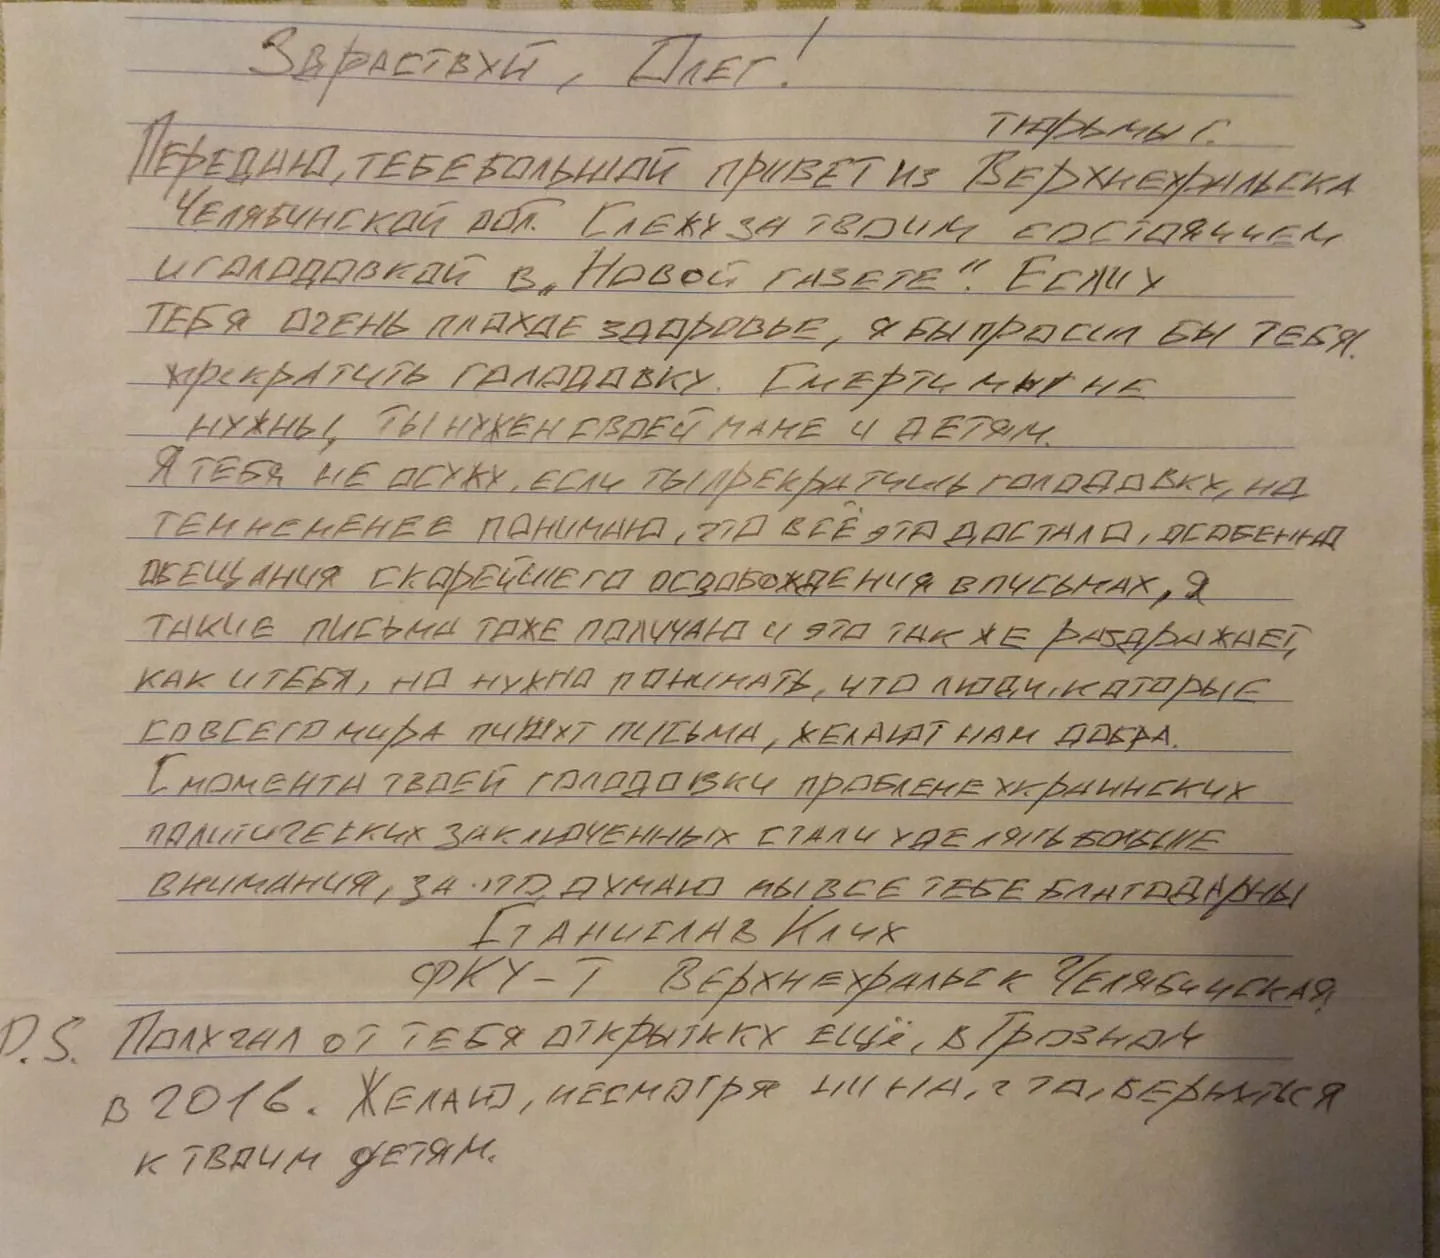 Здраствуй, Олег!
тюрьмы г.
Передаю, тебе большой привет из Верхнеуральска
Челябинской обл. Слежу за твоим состоянием
и голодовкой в „Новой газете“. Если у
тебя очень плохое здоровье, я бы просил бы тебя
прекратить голодовку. Смерти мы не
нужны, ты нужен своей маме и детям.
Я тебя не осужу, если ты прекратишь голодовку, но
тем не менее понимаю, что всё это достало, особенно
обещания скорейшего освобождения в письмах, я
такие письма тоже получаю и это так же раздражает,
как и тебя, но нужно понимать, что люди, которые
со всего мира пишут письма, желают нам добра.
С момента твоей голодовки проблеме украинских
политических заключенных стали уделять больше
внимания, за что, думаю мы все тебе благодарны
Станислав Клих
ФКУ-Т Верхнеуральск Челябинская
P.S. Получил от тебя открытку ещё, в Грозном
в 2016. Желаю, несмотря ни на, что, вернуться
к твоим детям.